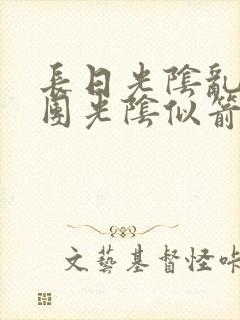 長日光陰亂
團光陰似箭
文藝基督怪咔